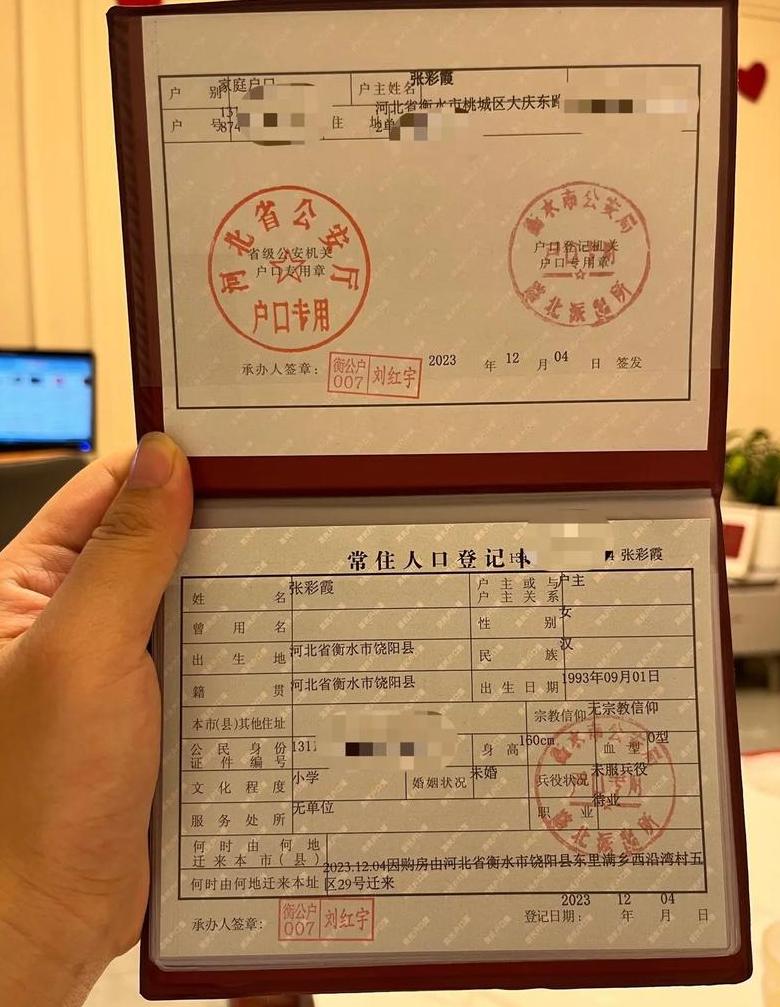 户 别 家庭户口 户主姓名 张彩霞
户 号 874 住 地 河北省衡水市桃城区大庆东路
2单
河北省公安厅
省级公安机关
户口专用章
户口专用
衡水市公安局
户口登记机关
户口专用章
派出所
承办人签章: 衡公户 007 刘红宇 2023 年 12 月 04 日 签发
常住人口登记卡 张彩霞
姓 名 张彩霞 户主或与户主关系 户主
曾用名 性 别 女
出生地 河北省衡水市饶阳县 民 族 汉
籍 贯 河北省衡水市饶阳县 出生日期 1993年09月01日
本市(县)其他住址 宗教信仰 无宗教信仰
公民身份证件编号 1311 身 高 160cm 血 型 O型
文化程度 小学 婚姻状况 未婚 兵役状况 未服兵役
服务处所 无单位 职 业 待业
何时由何地迁来本市(县) 2023.12.04因购房由河北省衡水市饶阳县东里满乡西沿湾村五
何时由何地迁来本址 区29号迁来
承办人签章: 衡公户 007 刘红宇 登记日期: 2023 年 12 月 04 日